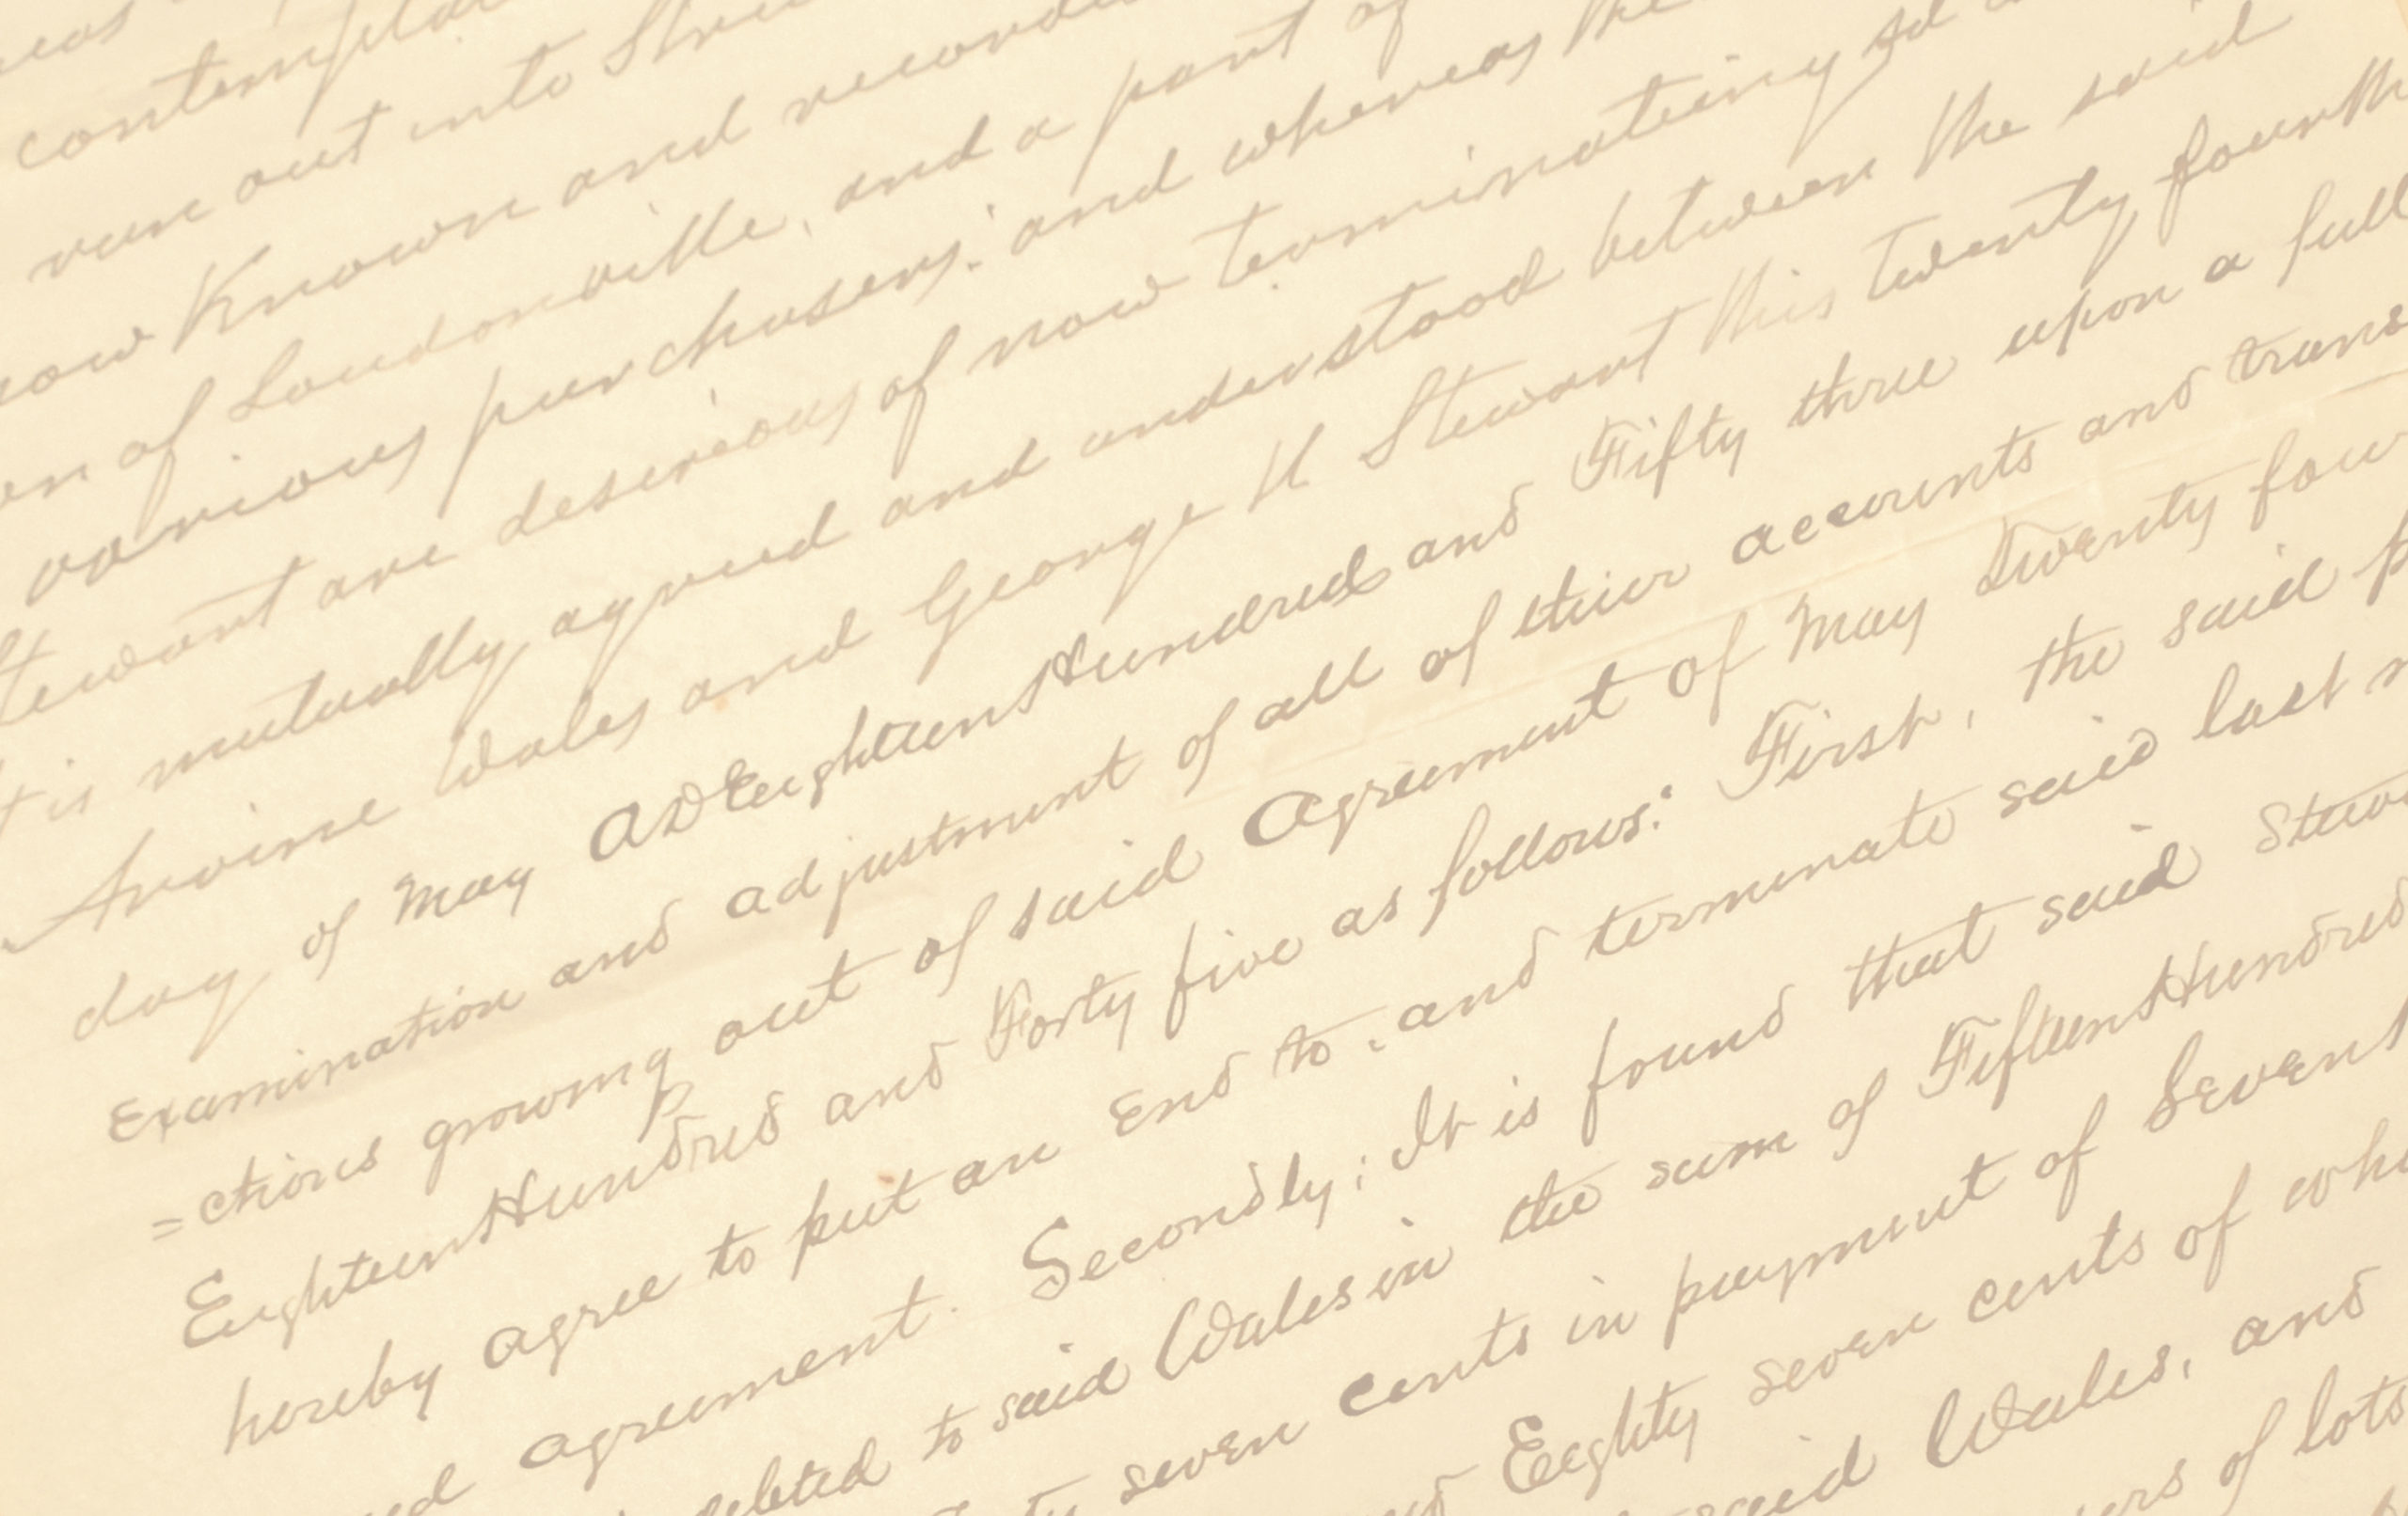 contempla
run out into Stre
now Known and recorde
on of Loudonville, and a part of
various purchasers; and whereas the
tewart are desireous of now terminateing sd
t is mutually agreed and understood between the said
Arvine Wales and George H Stewart this twenty fourth
day of May AD EighteenHundred and Fifty three upon a full
Examination and adjustment of all of their accounts and trans
=ctions growing out of said Agreement of May Twenty four
EighteenHundred and Forty five as follows: First, the said p
hereby agree to put an End to, and terminate said last n
ed agreement. Secondly; It is found that said Stew
debted to said Wales in the sum of FifteenHundred
ty seven cents in payment of Sevent
nd Eighty seven cents of whi
said Wales, and
ers of lots